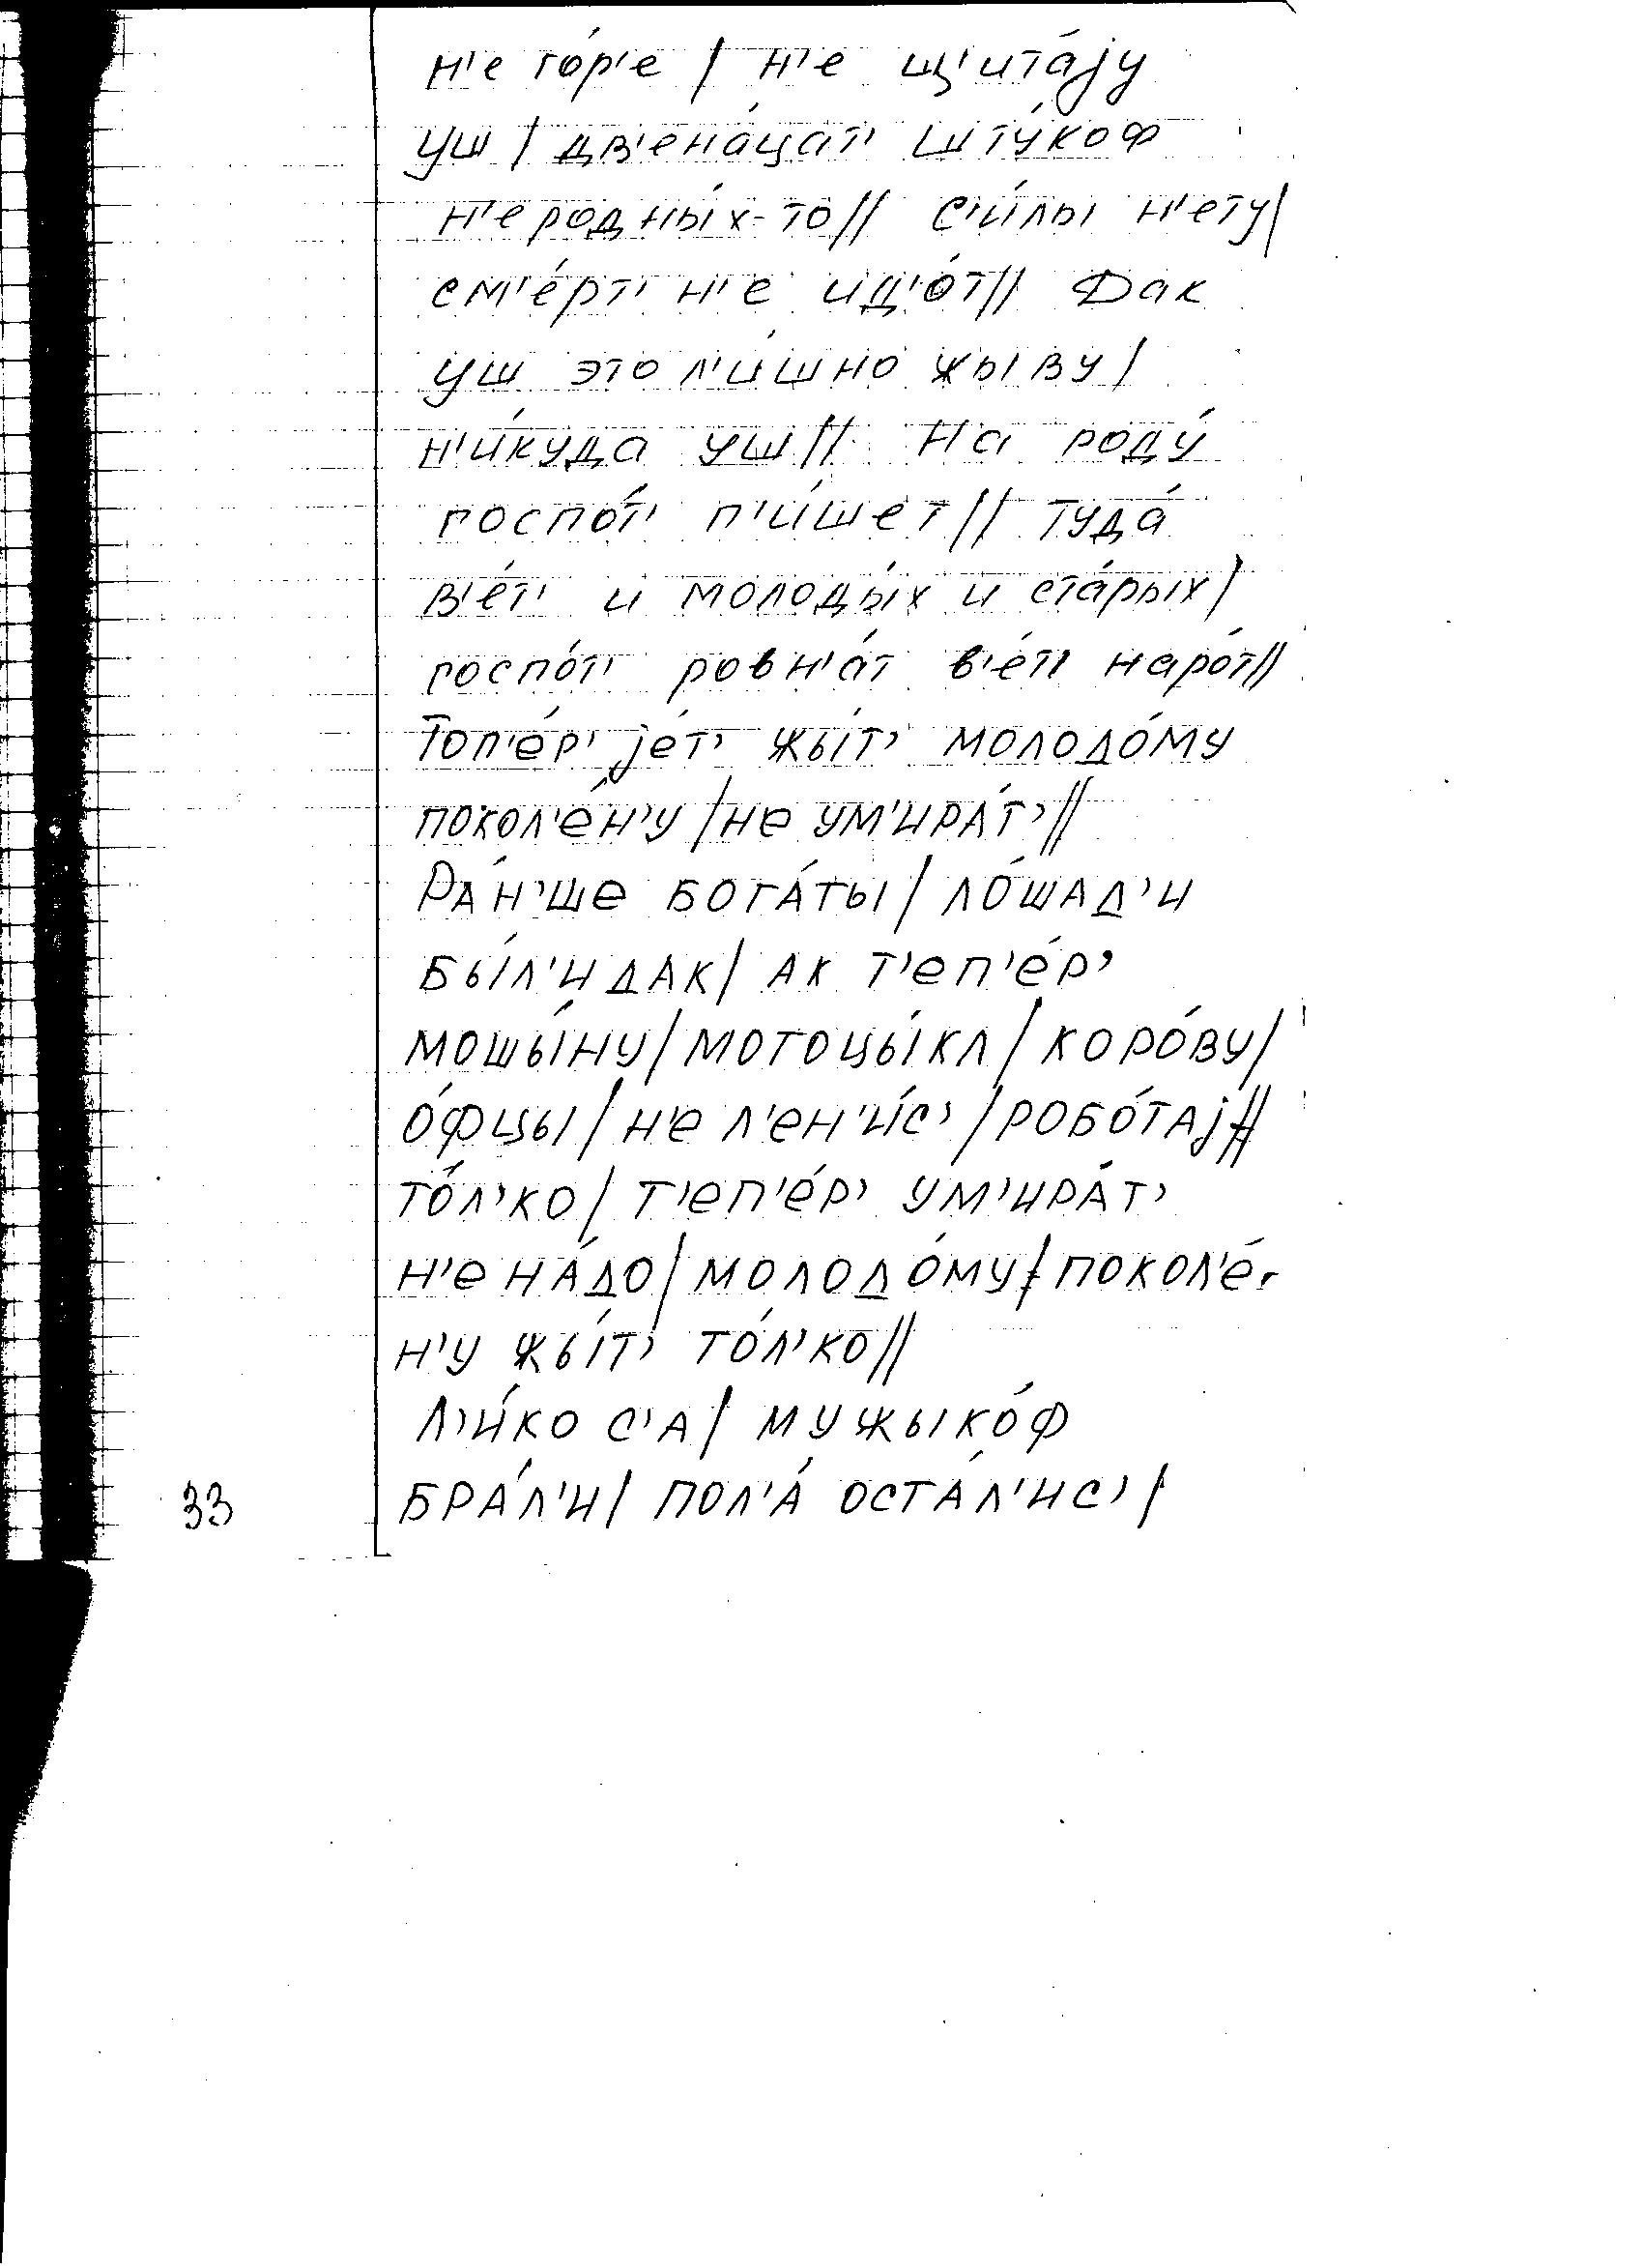 н'е го́р'е / н'е щ'ита́jу
уш / дв'ена́цат' шту́коф
н'еродны́х-то // с'и́лы н'ету /
см'е́рт' н'е ид'о́т // Дак
уш это л'и́шно жыву /
н'и́куда уш // На роду́
госпо́т' п'и́шет // туда́
в'е́т' и молоды́х и ста́рых /
госпо́т' ровн'а́т в'е́т' наро́т //
Топ'е́р' jе́т' жы́т' молодо́му
покол'е́н'у / не ум'ира́т' //
Ра́н'ше бога́ты / ло́шад'и
бы́л'и дак / ак т'еп'е́р'
мошы́ну / мотоцы́кл / коро́ву /
о́фцы / н'е л'ен'и́с' / робо́таj //
то́л'ко / т'еп'е́р' ум'ира́т'
н'е на́до / молодо́му / покол'е́-
н'у жы́т' то́л'ко //
Л'и́ко с'а / мужыко́ф
33 бра́л'и / пол'а́ оста́л'ис' /